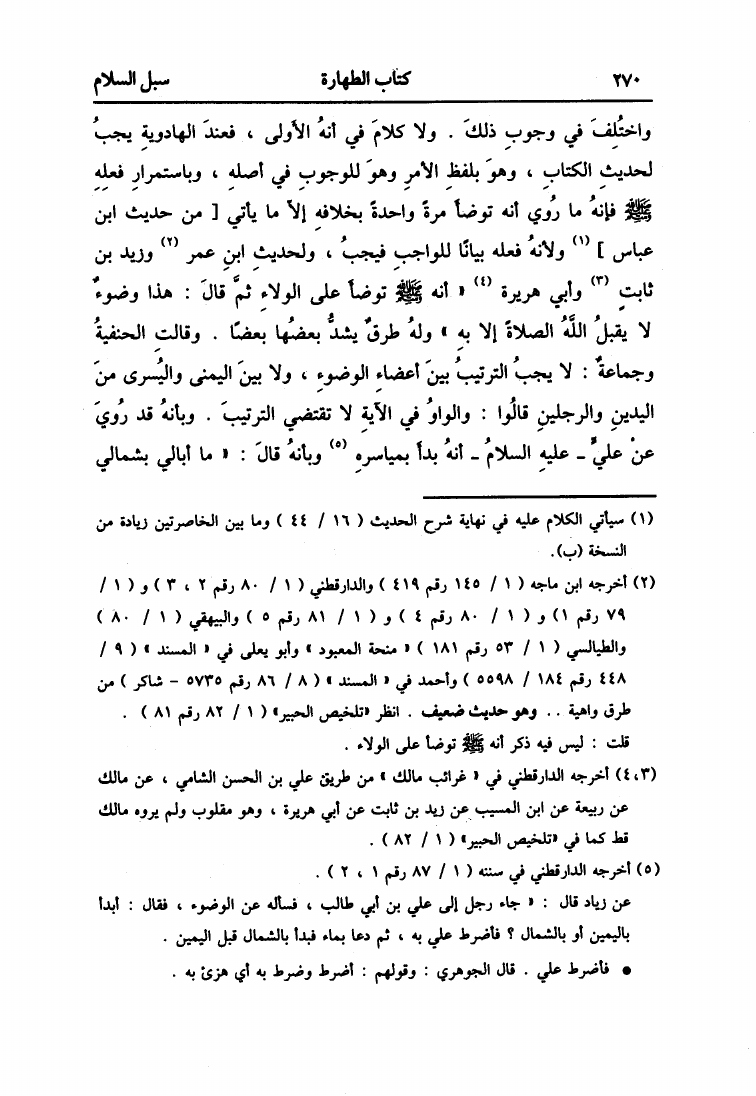 ٢٧٠ كتاب الطهارة سبل السلام
واختُلِفَ في وجوبِ ذلكَ . ولا كلامَ في أنهُ الأولى ، فعندَ الهادويةِ يجبُ
لحديثِ الكتابِ ، وهوَ بلفظِ الأمرِ وهوَ للوجوبِ في أصلهِ ، وباستمرارِ فعلهِ
ﷺ فإنهُ ما رُوي أنه توضأَ مرةً واحدةً بخلافهِ إلاَّ ما يأتي [ من حديث ابن
عباس ] (١) ولأنهُ فعله بيانًا للواجبِ فيجبُ ، ولحديثِ ابنِ عمر (٢) وزيد بن
ثابتٍ (٣) وأبي هريرة (٤) « أنه ﷺ توضأَ على الولاءِ ثمَّ قالَ : هذا وضوءٌ
لا يقبلُ اللَّهُ الصلاةَ إلا بهِ » ولهُ طرقٌ يشدُّ بعضُها بعضًا . وقالتِ الحنفيةُ
وجماعةٌ : لا يجبُ الترتيبُ بينَ أعضاءِ الوضوءِ ، ولا بينَ اليمنى واليُسرى منَ
اليدينِ والرجلينِ قالُوا : والواوُ في الآيةِ لا تقتضي الترتيبَ . وبأنهُ قد رُويَ
عنْ عليٍّ ـ عليهِ السلامُ ـ أنهُ بدأَ بمياسرهِ (٥) وبأنهُ قالَ : « ما أبالي بشمالي
(١) سيأتي الكلام عليه في نهاية شرح الحديث ( ١٦ / ٤٤ ) وما بين الخاصرتين زيادة من
النسخة (ب).
(٢) أخرجه ابن ماجه ( ١ / ١٤٥ رقم ٤١٩ ) والدارقطني ( ١ / ٨٠ رقم ٢ ، ٣ ) و ( ١ /
٧٩ رقم ١) و ( ١ / ٨٠ رقم ٤ ) و ( ١ / ٨١ رقم ٥ ) والبيهقي ( ١ / ٨٠ )
والطيالسي ( ١ / ٥٣ رقم ١٨١ ) « منحة المعبود » وأبو يعلى في « المسند » ( ٩ /
٤٤٨ رقم ١٨٤ / ٥٥٩٨ ) وأحمد في « المسند » ( ٨ / ٨٦ رقم ٥٧٣٥ - شاكر ) من
طرق واهية .. وهو حديث ضعيف . انظر «تلخيص الحبير» ( ١ / ٨٢ رقم ٨١ ) .
قلت : ليس فيه ذكر أنه ﷺ توضأ على الولاء .
(٣،٤) أخرجه الدارقطني في « غرائب مالك » من طريق علي بن الحسن الشامي ، عن مالك
عن ربيعة عن ابن المسيب عن زيد بن ثابت عن أبي هريرة ، وهو مقلوب ولم يروه مالك
قط كما في «تلخيص الحبير» ( ١ / ٨٢ ) .
(٥) أخرجه الدارقطني في سننه ( ١ / ٨٧ رقم ١ ، ٢ ) .
عن زياد قال : « جاء رجل إلى علي بن أبي طالب ، فسأله عن الوضوء ، فقال : أبدأ
باليمين أو بالشمال ؟ فأضرط علي به ، ثم دعا بماء فبدأ بالشمال قبل اليمين .
● فأضرط علي . قال الجوهري : وقولهم : أضرط وضرط به أي هزئ به .